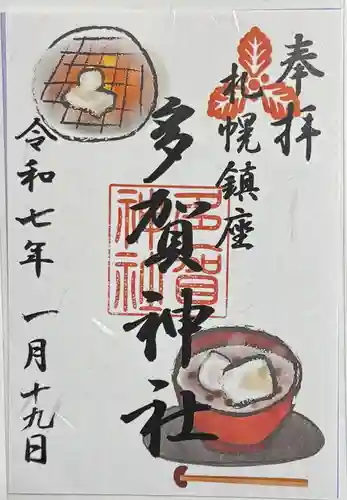 奉拝
札幌鎮座
多賀神社
多賀
神社
令和七年 一月十九日